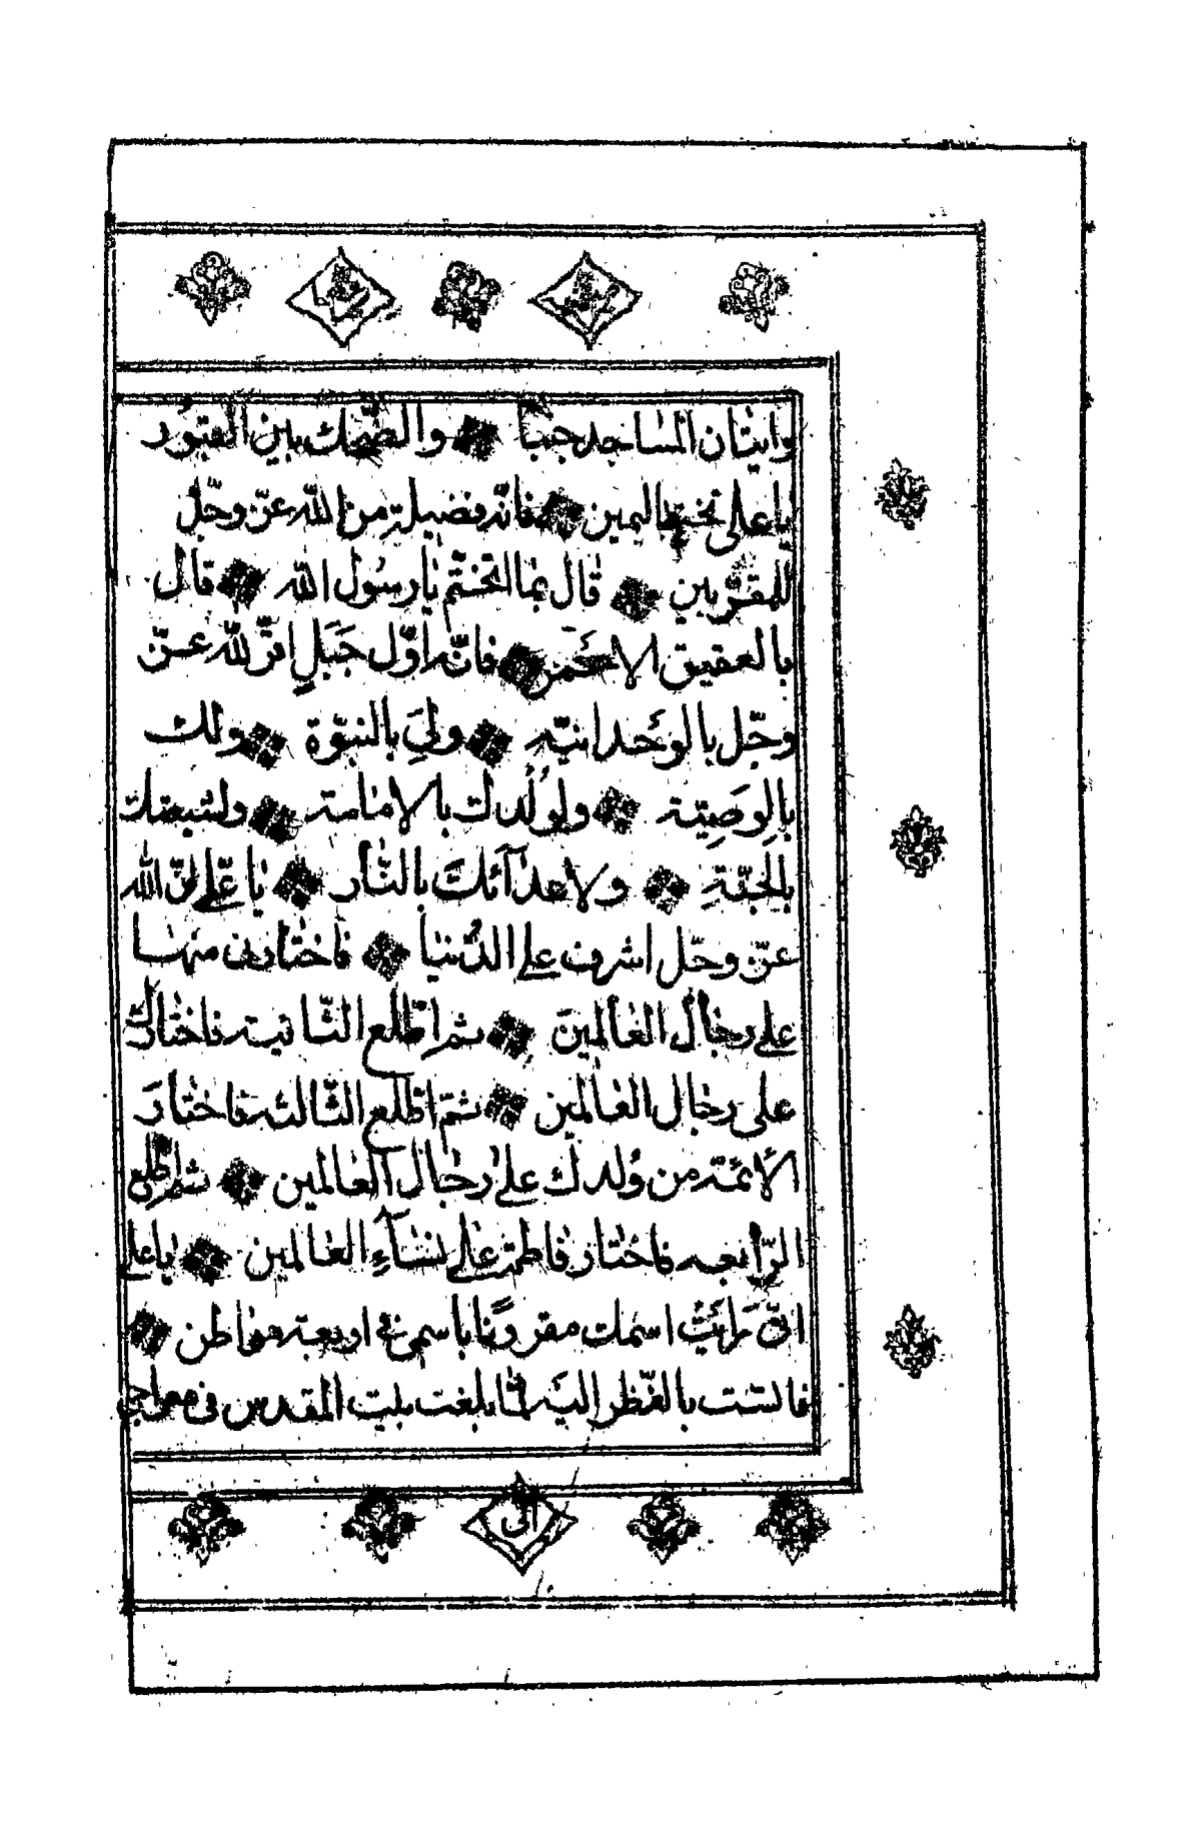 واتيان المساجد جنبا والضحك بين القبور
يا على تختم باليمين فانه فضيلة من الله عزّ وجلّ
للمقرّبين قال بما اتختّم يا رسول الله قال
بالعقيق الاحمر فانّه اوّل جَبَلٍ اقرّ لله عزّ
وجّل بالوَحدانيّه ولِيَ بالنبّوة ولك
بالِوَصِيّة ولِوُلْدك بالامامة ولشيعتك
بالجنّةِ ولاعدآئك بالنّار يا علّي انّ الله
عزّ وجّل اشرف على الدُّنيا فاختارنى منها
على رجال العالمينَ ثم اطّلع الثّانية فاختارك
على رجال العالمين ثمّ اطّلع الثّالثه فاختارَ
الأئمّة من وُلدك على رجال العالمين ثم اطّلع
الرّابعه فاختار فاطمة على نسآءِ العالمين يا على
انّى رَأيْتُ اسمك مقروناً باسمى فى اربعة مواطن
فانستُ بالنّظر اليه لمّا بلغت بيت المقدس فى معراجى
الى